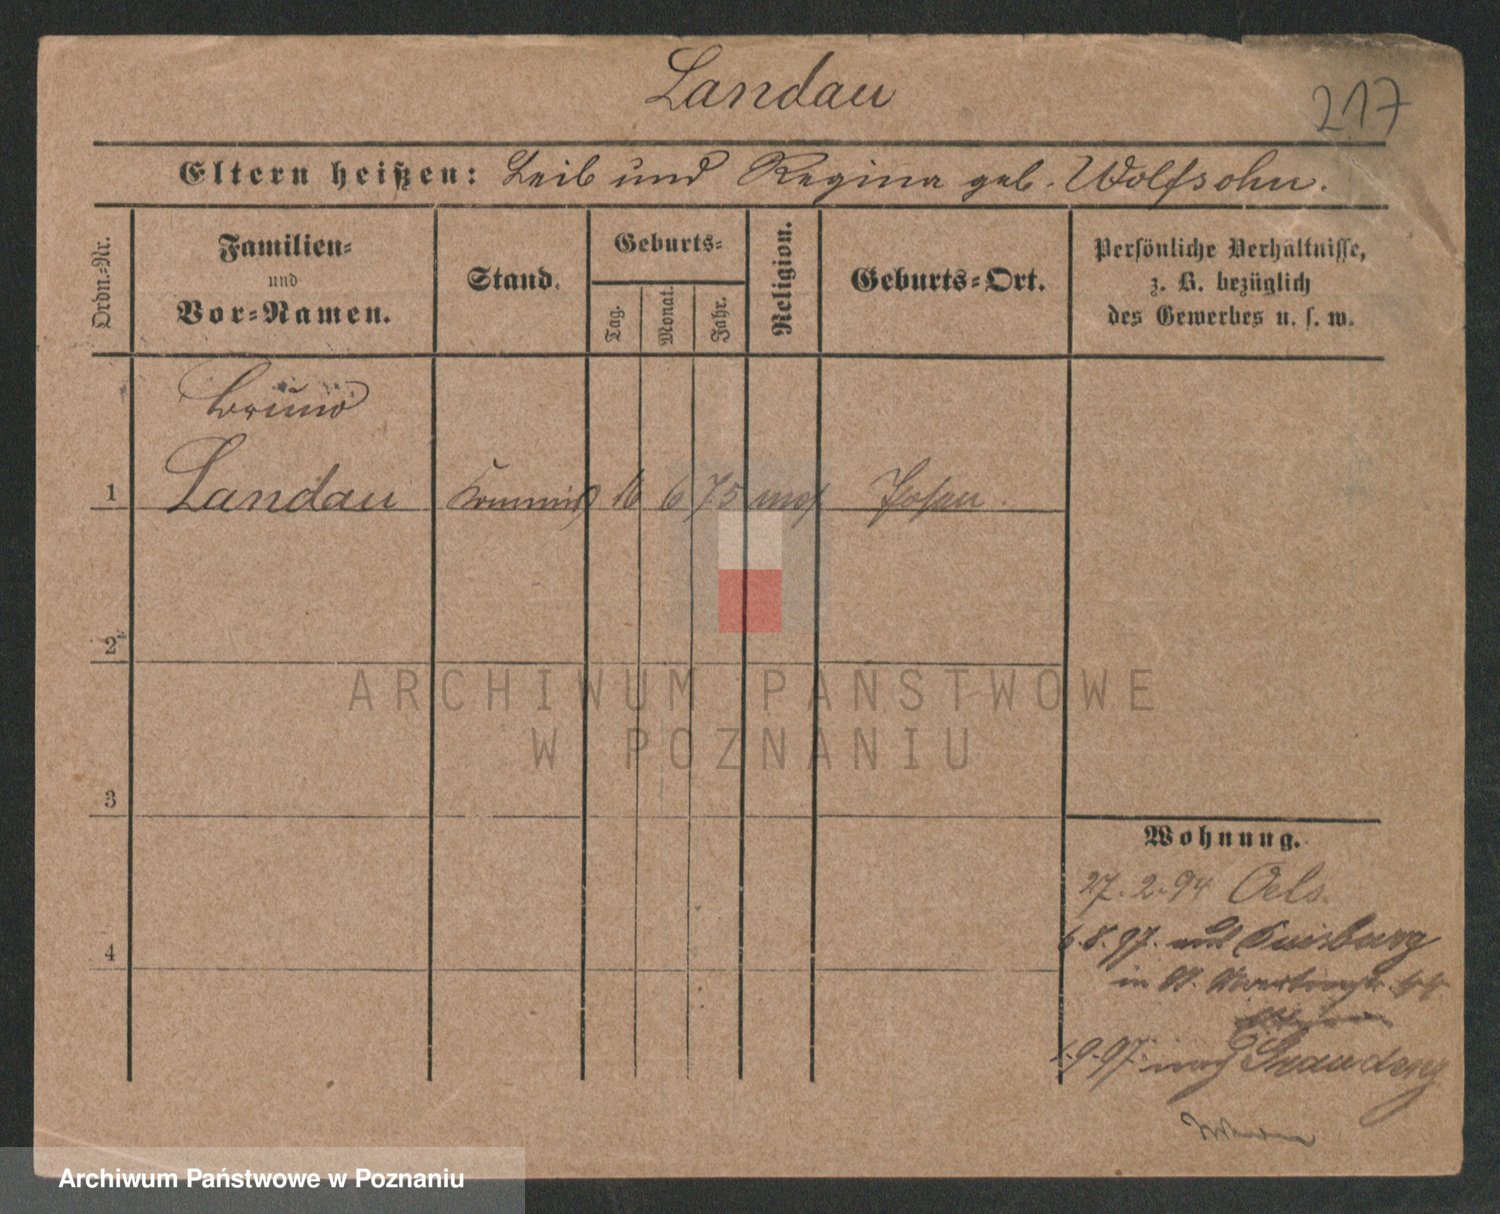 Landau
217
Eltern heißen: Leib und Regina geb. Wolfsohn.
Ordn.-Nr.
Familien-
und
Vor-Namen.
Stand.
Geburts-
Tag.
Monat.
Jahr.
Religion.
Geburts-Ort.
Persönliche Verhältnisse,
z. B. bezüglich
des Gewerbes u. s. w.
Bruno
1 Landau Kommis 16 6 75 mos. Posen
2
3
4
Wohnung.
27.2.94 Oels.
6.8.97. aus Duisburg
in St.
1.9.97. nach Graudenz
ARCHIWUM PAŃSTWOWE
W POZNANIU
Archiwum Państwowe w Poznaniu